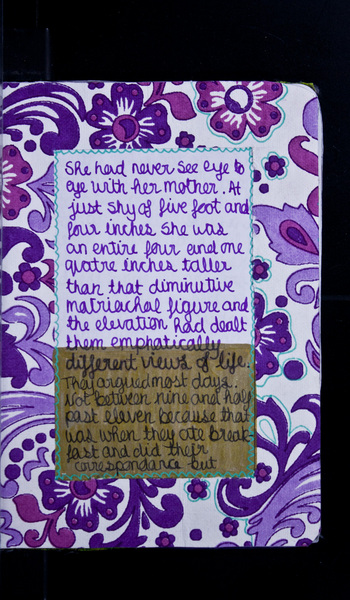 She had never see eye to
eye with her mother. At
just shy of five foot and
four inches she was
an entire four and one
quatre inches taller
than that diminutive
matriachal figure and
the elevation had dealt
them emphatically
different views of life.
They argued most days.
Not between nine and half
past eleven because that
was when they ate break-
fast and did their
correspondance but